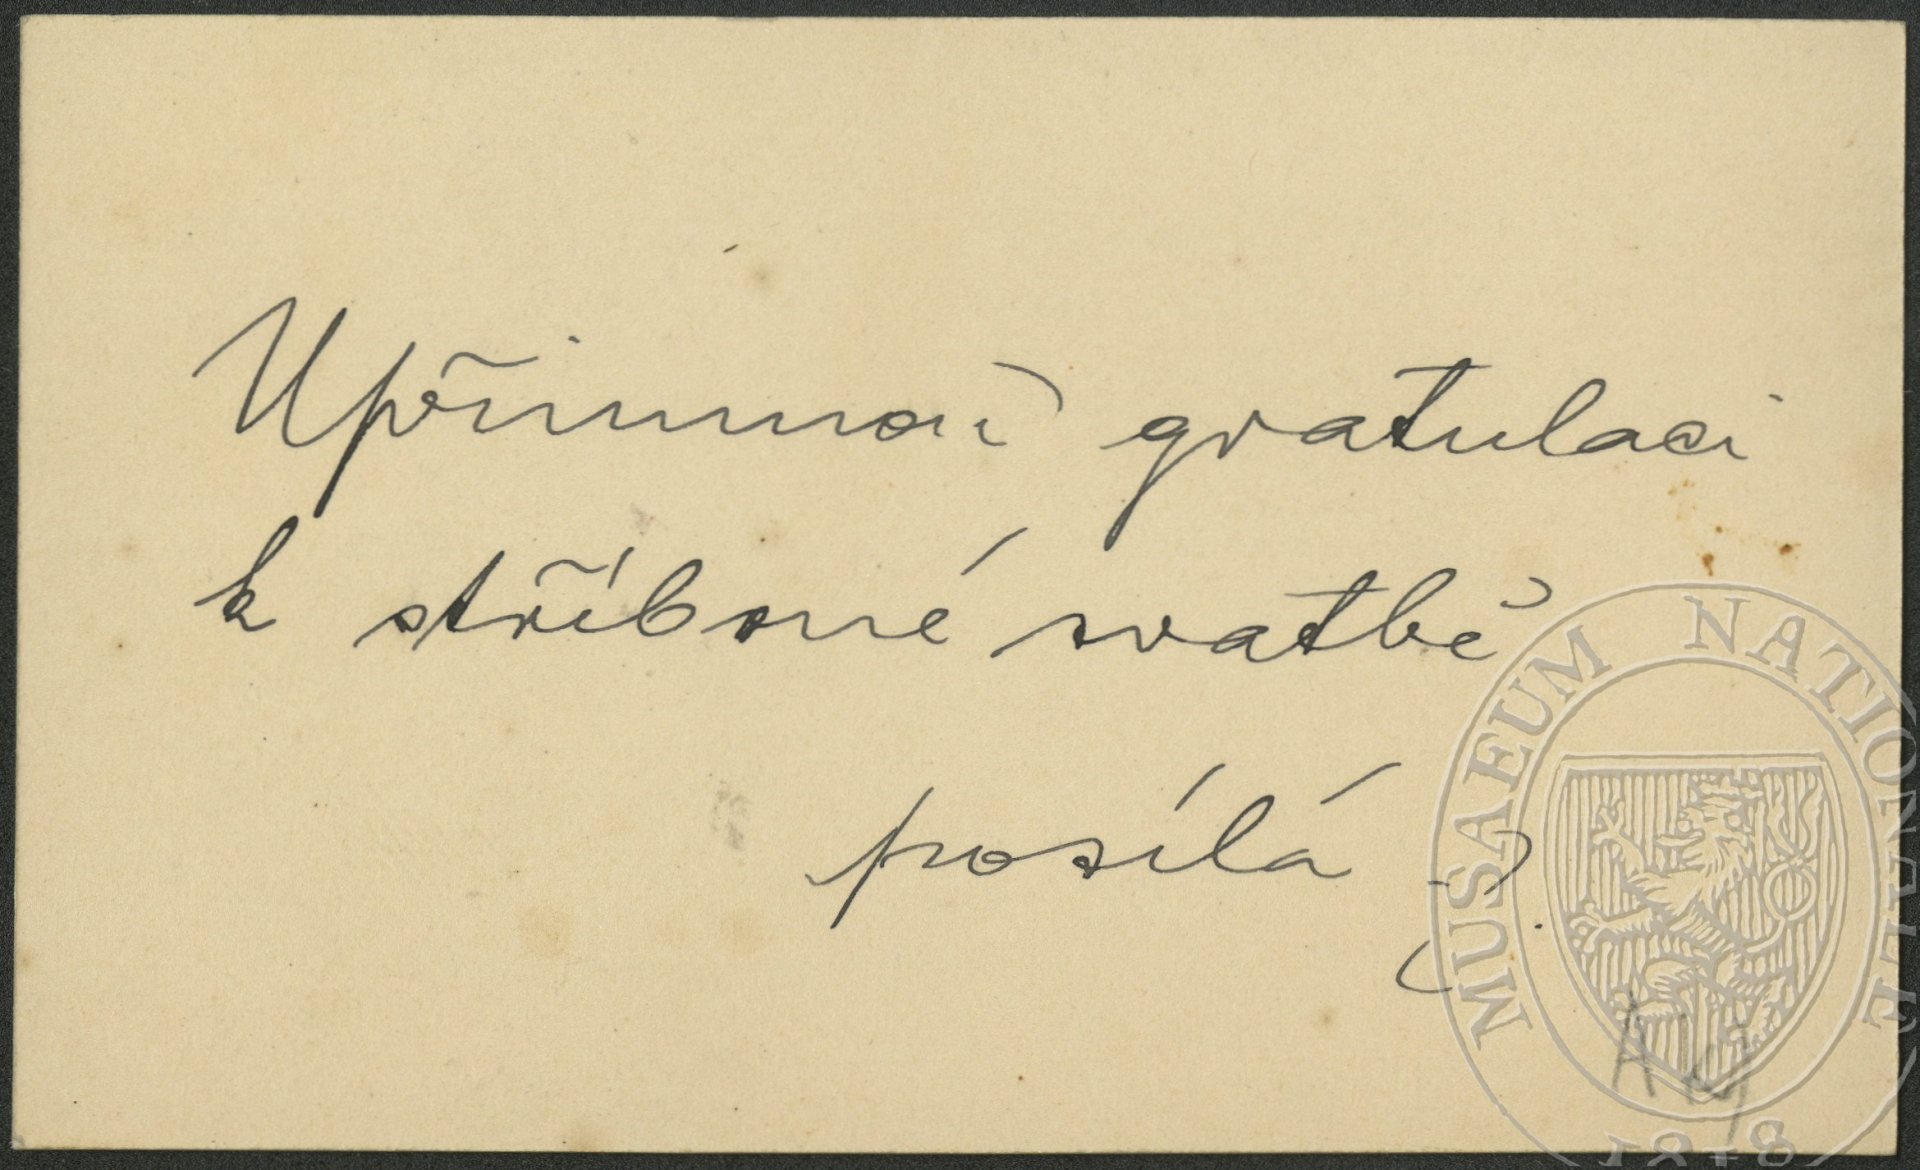 Upřimnou gratulaci
k stříbrné svatbě
posílá
MUSAEUM NATIONALE
1818